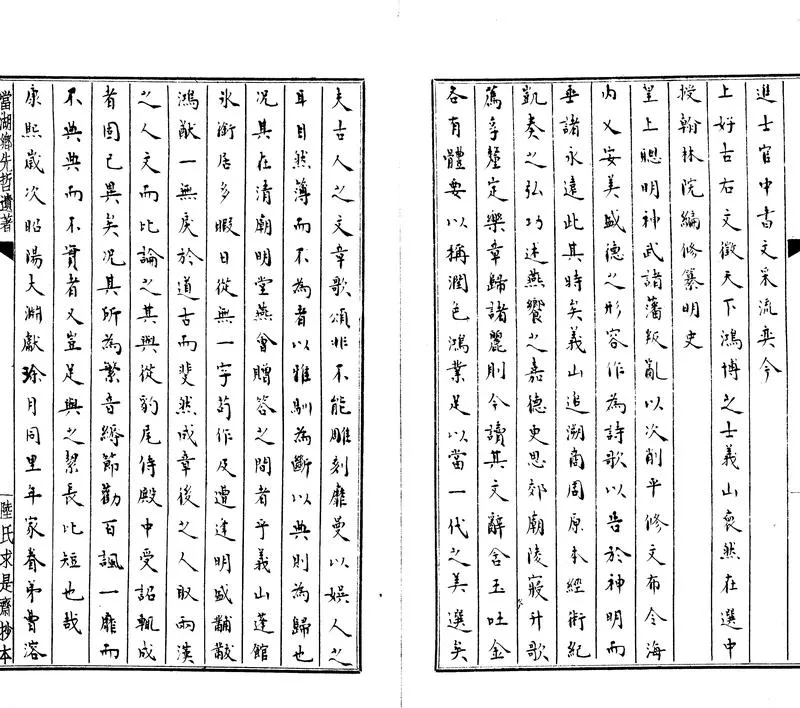 進士官中書文采流奕今
上好古右文徵天下鴻博之士義山裒然在選中
授翰林院編修纂明史
皇上聰明神武諸藩叛亂以次削平修文布令海
內乂安美盛德之形容作為詩歌以告於神明而
垂諸永遠此其時矣義山追溯商周原本經術紀
凱奏之弘功述燕饗之嘉德更思郊廟陵寢升歌
薦享釐定樂章歸諸麗則今讀其文辭含玉吐金
各有體要以稱潤色鴻業足以當一代之美選矣
夫古人之文章歌頌非不能雕刻靡曼以娛人之
耳目然薄而不為者以雅馴為斷以典則為歸也
況其在清廟明堂燕會贈答之間者乎義山蓬館
冰銜居多暇日從無一字苟作及遭逢明盛黼黻
鴻猷一無戾於道古而斐然成章後之人取兩漢
之人文而比論之其與從豹尾侍殿中受詔輒成
者固已異矣況其所為繁音縟節勸百諷一靡而
不典典而不實者又豈足與之絜長比短也哉
康熙歲次昭陽大淵獻瑹月同里年家眷弟曹溶
當湖鄉先哲遺著
陸氏求是齋抄本